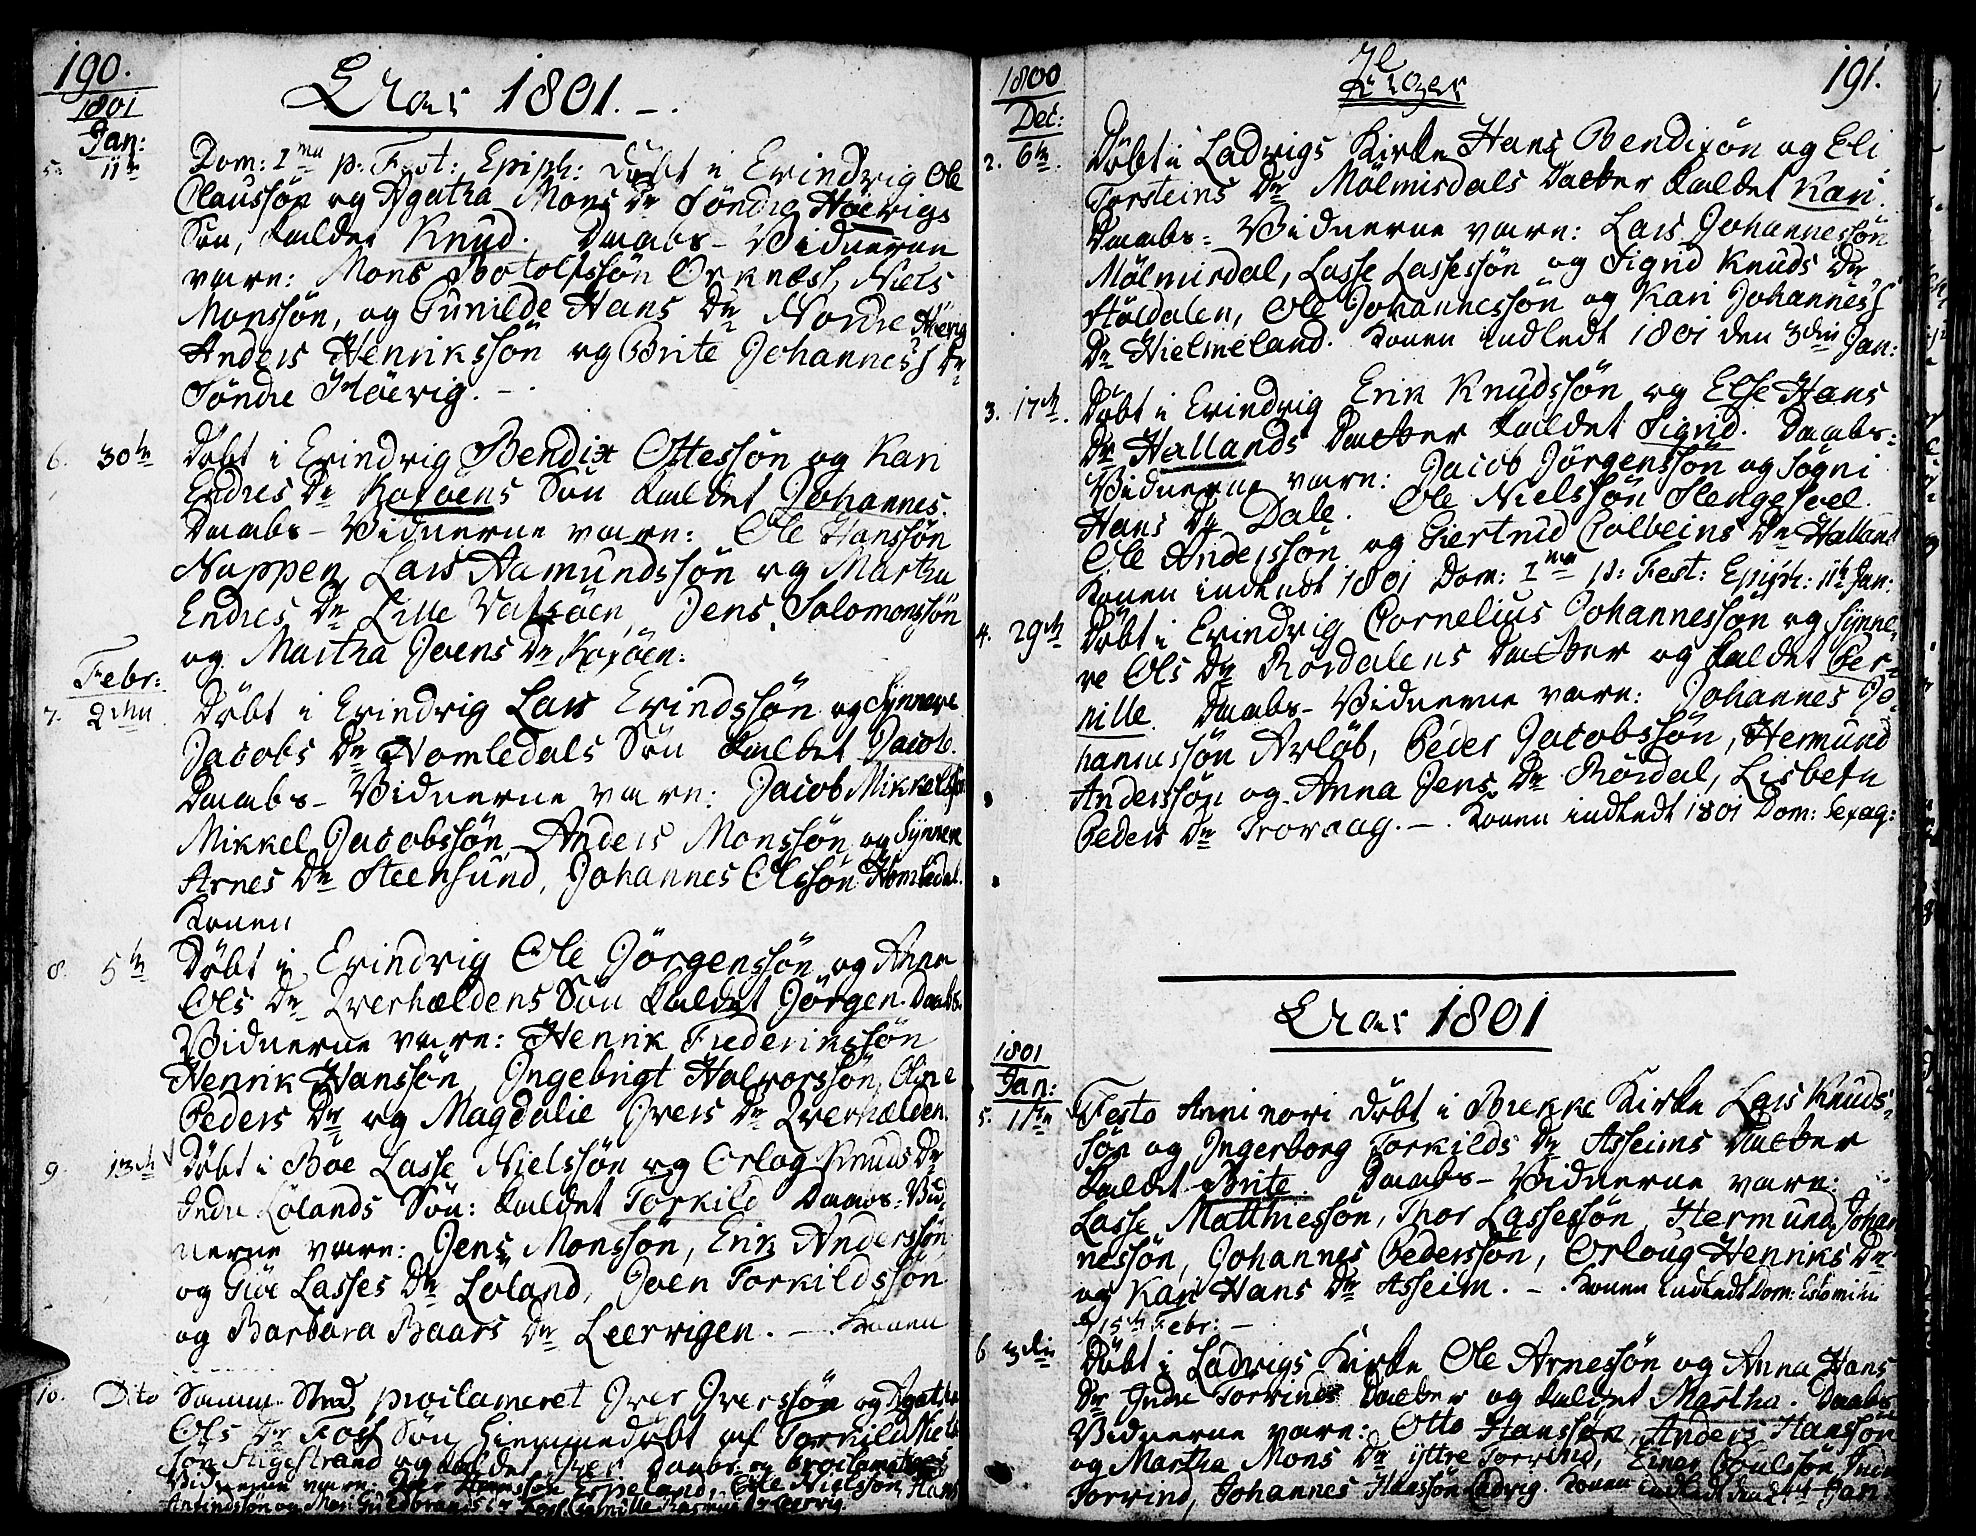 190.
1801
Aar 1801.
Jan:
5. 11te Dom: 1ma p. Fest: Epiph: Døbt i Evindvig Ole
Claussøn og Agatha Mons Dr Søndre Høevigs
Søn, kaldet Knud. Daabs-Vidnerne
vare: Mons Botolfssøn Ørknæss, Niels
Monssøn, og Gunilde Hans Dr Nordre Høevig
Anders Henrikssøn og Brite Johannes Dr
Søndre Høevig.
6. 30te Døbt i Evindvig Bendix Ottessøn og Kari
Endres Dr Koxøens Søn kaldet Johannes.
Daabs-Vidnerne vare: Ole Hanssøn
Nappen, Lars Aamundssøn og Martha
Endres Dr Lille Vatsøen, Jens Solomonssøn
og Martha Joens Dr Koxøen.
Febr:
7. 2den Døbt i Evindvig Lars Evindssøn og Synneve
Jacobs Dr Homledals Søn kaldet Jacob.
Daabs-Vidnerne vare: Jacob Mikkelssøn
Mikkel Jacobssøn, Anders Monssøn og Synneve
Arnes Dr Steensund, Johannes Olssøn Homledal.
Konen
8. 5te Døbt i Evindvig Ole Jørgenssøn og Anna
Ols Dr Qverhældens Søn kaldet Jørgen. Daabs
Vidnerne vare: Henrik Frederikssøn
Henrik Hanssøn, Ingebrigt Halvorssøn, Oline
Peders Dr og Magdalie Ivers Dr Qverhælden.
9. 13de Døbt i Boe Lasse Nielssøn og Orlog Knuds Dr
Indre Lølands Søn: kaldet Torkild Daabs-Vid-
nerne vare: Jens Monssøn, Erik Anderssøn
og Giøe Lasses Dr Løland, Joen Torkildssøn
og Barbara Baars Dr Leervigen. Konen
10. Dito Samme Sted proclameret Iver Iverssøn og Agatha
Ols Dr Foss Søn, hiemmedøbt af Torkild Niels
søn og kaldet Iver Daabs- og Proclamations
Vidnerne vare: Hanssøn Espeland, Ole Nielssøn, Hans
1800
Dec:
191.
2. 6te Døbt i Ladvigs Kirke Hans Bendixøn og Eli
Torsteins Dr Mølmisdals Datter kaldet Kari.
Daabs-Vidnerne vare: Lars Johannessøn
Mølmisdal, Lasse Lassessøn og Sigrid Knuds Dr
Støldalen, Ole Johannessøn og Kari Johannes
Dr Hielmeland. Konen indledt 1801 den 3die Jan:
3. 17de Døbt i Evindvig Erik Knudssøn og Else Hans
Dr Hallands Datter kaldet Sigrid. Daabs-
Vidnerne vare: Jacob Jørgenssøn og Sogni
Hans Dr Dale. Ole Nielssøn
Ole Anderssøn og Giertrud Colbeins Dr Halland
Konen indledt 1801 Dom: 1ma p: Fest: Epiph: 11te Jan:
4. 29de Døbt i Evindvig Cornelius Johannessøn og Synne-
ve Ols Dr Rørdalens Datter og kaldet Per-
nille. Daabs-Vidnerne vare: Johannes Jo-
hannessøn Arløb, Peder Jacobssøn, Hermund
Anderssøn og Anna Jens Dr Rørdal, Lisbeth
Peders Dr Trovaag. Konen indledt 1801 Dom: Sexag:
Aar 1801
1801
Jan:
5. 1ste Festo Anni novi døbt i Brekke Kirke Lars Knuds-
søn og Ingerborg Torkilds Dr Asseims Datter
kaldet Brite. Daabs-Vidnerne vare:
Lasse Matthiessøn, Thor Lassessøn, Hermund Johan
nessøn, Johannes Pederssøn, Orloug Henriks Dr
og Kari Hans Dr Asseim. Konen indledt Dom: Estomihi
d 15de Febr:
6 3die Døbt i Ladvigs Kirke Ole Arnessøn og Anna Hans
Dr Indre Torvinds Datter og kaldet Martha. Daabs
Vidnerne vare: Otto Hanssøn, Anders Hanssøn
og Martha Mons Dr yttre Torvind, Einer Poulssøn Indre
Torvind, Johannes Hanssøn Ladvig. Konen indledt den Jan